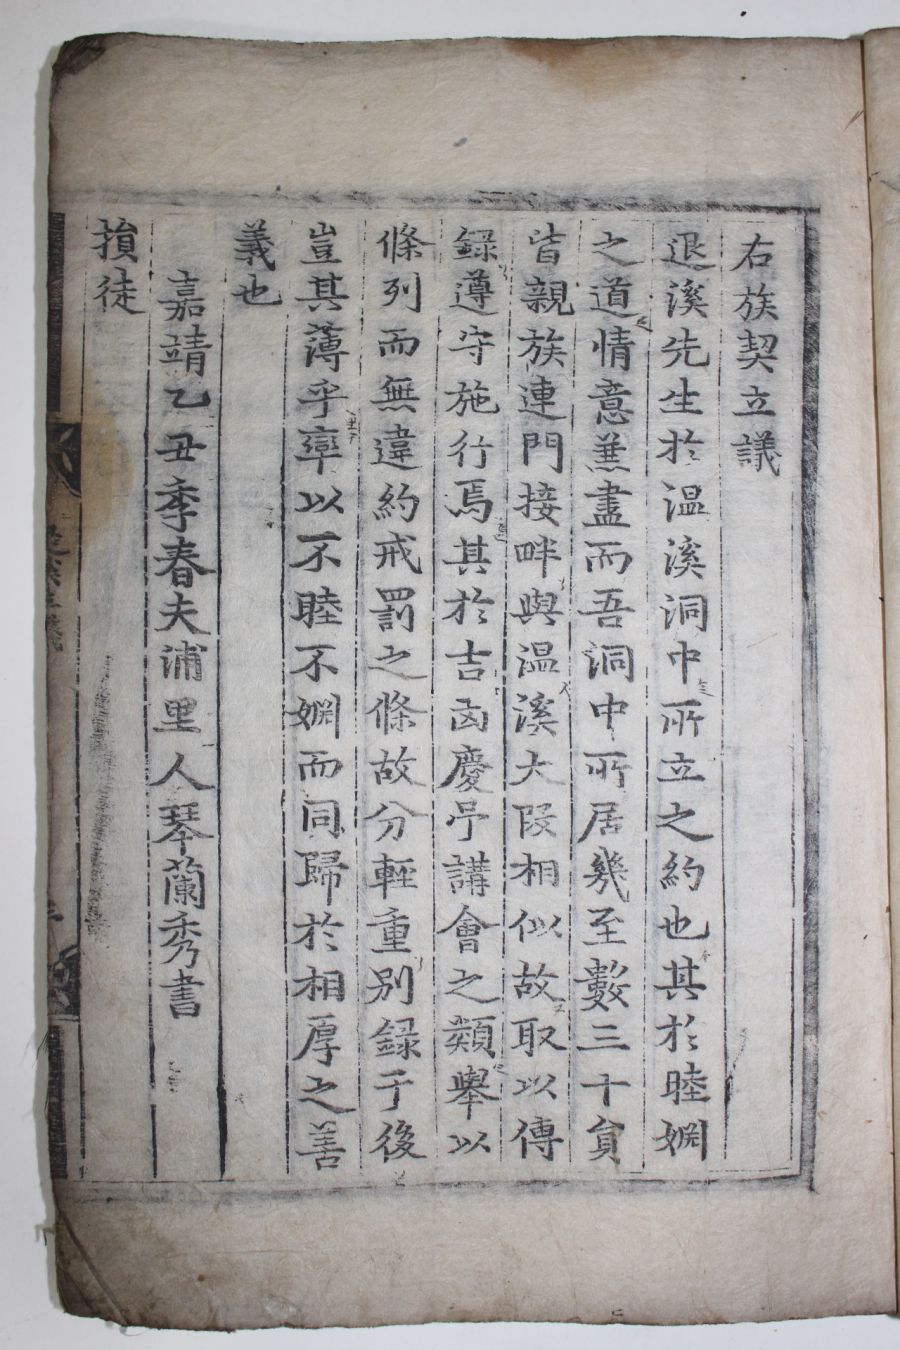 右族契立議
退溪先生於温溪洞中所立之約也其於睦婣
之道情意兼盡而吾洞中所居幾至數三十負
皆親族連門接畔與温溪大段相似故取以傳
録遵守施行焉其於吉凶慶弔講會之類舉以
條列而無違約戒罰之條故分輕重别録于後
豈其薄乎率以不睦不婣而同歸於相厚之善
義也
嘉靖乙丑季春夫浦里人琴蘭秀書
損徒